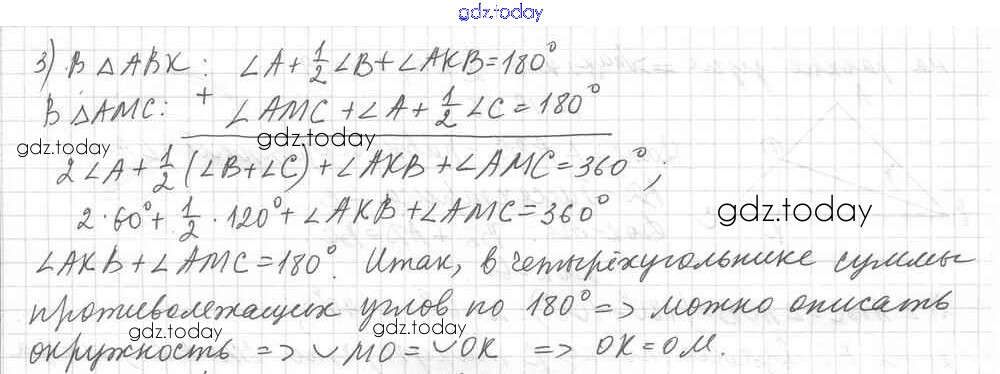 gdz.today
3) В △ABK: ∠A+½∠B+∠AKB=180°
В △AMC: + ∠AMC+∠A+½∠C=180°
gdz.today
gdz.today
2∠A+½(∠B+∠C)+∠AKB+∠AMC=360°;
2·60°+½·120°+∠AKB+∠AMC=360°
gdz.today
∠AKB+∠AMC=180°. Итак, в четырёхугольнике суммы
противолежащих углов по 180° => можно описать
gdz.today
gdz.today
окружность => ◡MO=◡OK => OK=OM.